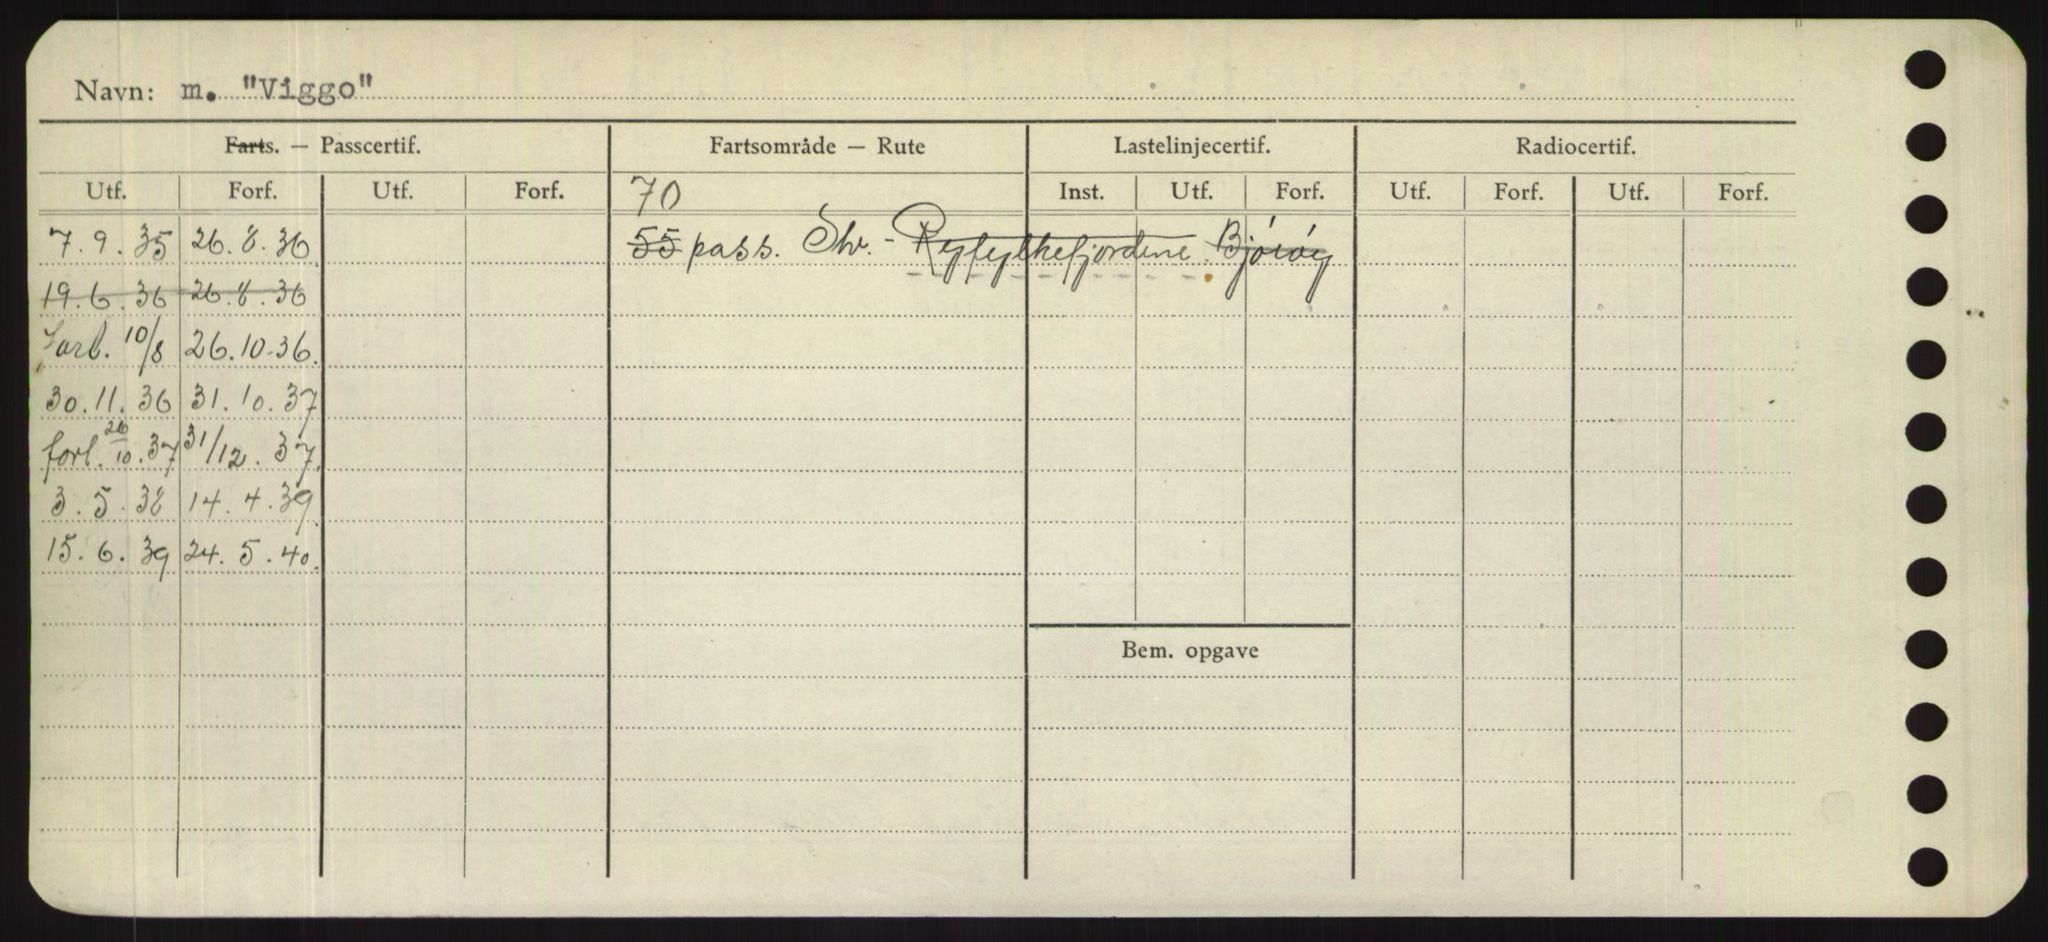 Navn: m. "Viggo"
Farts. — Passcertif. Fartsområde — Rute Lastelinjecertif. Radiocertif.
Utf. Forf. Utf. Forf. 70 Inst. Utf. Forf. Utf. Forf. Utf. Forf.
7.9.35 26.8.36 55 pass. Shv. - Ryfylkefjordene. Bjórøy
19.6.36 26.8.36
Forl. 10/8 26.10.36.
30.11.36 31.10.37
forl. 26/10.37 31/12.37.
3.5.38 14.4.39
15.6.39 24.5.40.
Bem. opgave